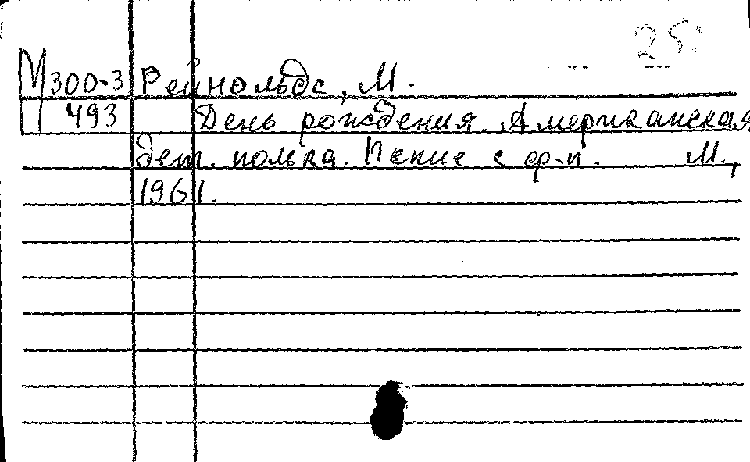 25
М300-3 Рейнольдс, М.
493 День рождения. Американская
дет. полька. Пение с ф-п. М.,
1961.